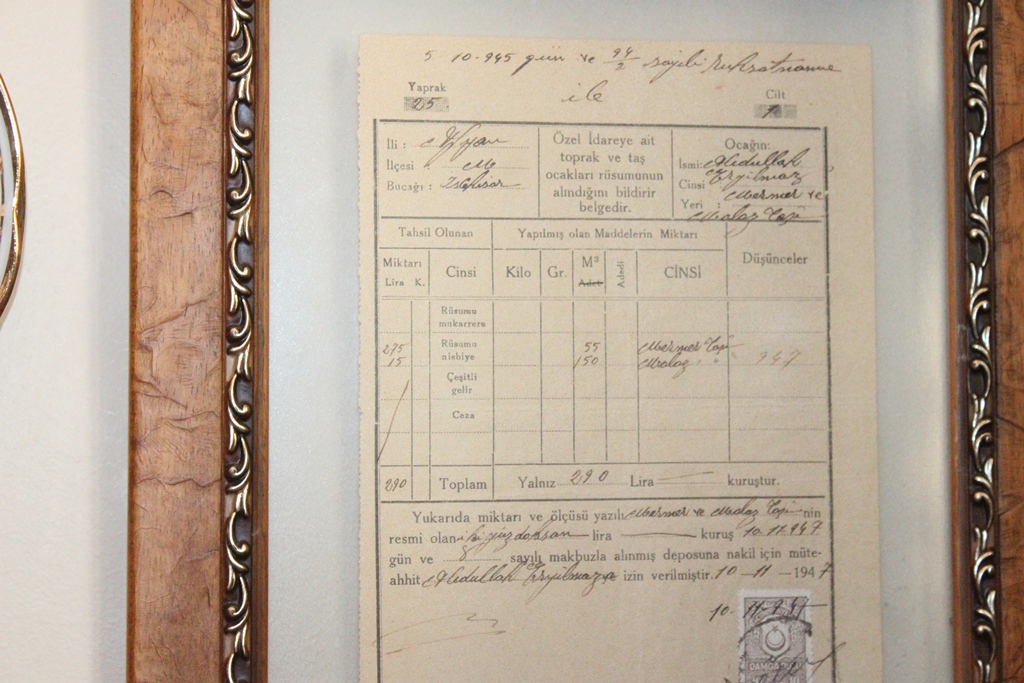 5 10-945 gün ve 94/2 sayılı ruhsatname
ile
Yaprak
25
Cilt
1
İli : Afyon
İlçesi " M
Bucağı :
Özel İdareye ait
toprak ve taş
ocakları rüsumunun
alındığını bildirir
belgedir.
Ocağın:
İsmi: Abdullah
Eryılmaz
Cinsi Mermer ve
Yeri : Moloz Taşı
Tahsil Olunan
Yapılmış olan Maddelerin Miktarı
Düşünceler
Miktarı
Lira K.
Cinsi
Kilo
Gr.
M³
Adet
Adedi
CİNSİ
Rüsumu
mukarrere
275 Rüsumu 55 Mermer Taşı
15 nisbiye 150 Moloz " 947
Çeşitli
gelir
Ceza
290 Toplam Yalnız 290 Lira — kuruştur.
Yukarıda miktarı ve ölçüsü yazılı Mermer ve Moloz Taşı nin
resmi olan iki yüz doksan lira — kuruş 10.11.947
gün ve 8 sayılı makbuzla alınmış deposuna nakil için müte-
ahhit Abdullah Eryılmaz a izin verilmiştir. 10 - 11 - 1947
10-11-947
DAMGA PULU